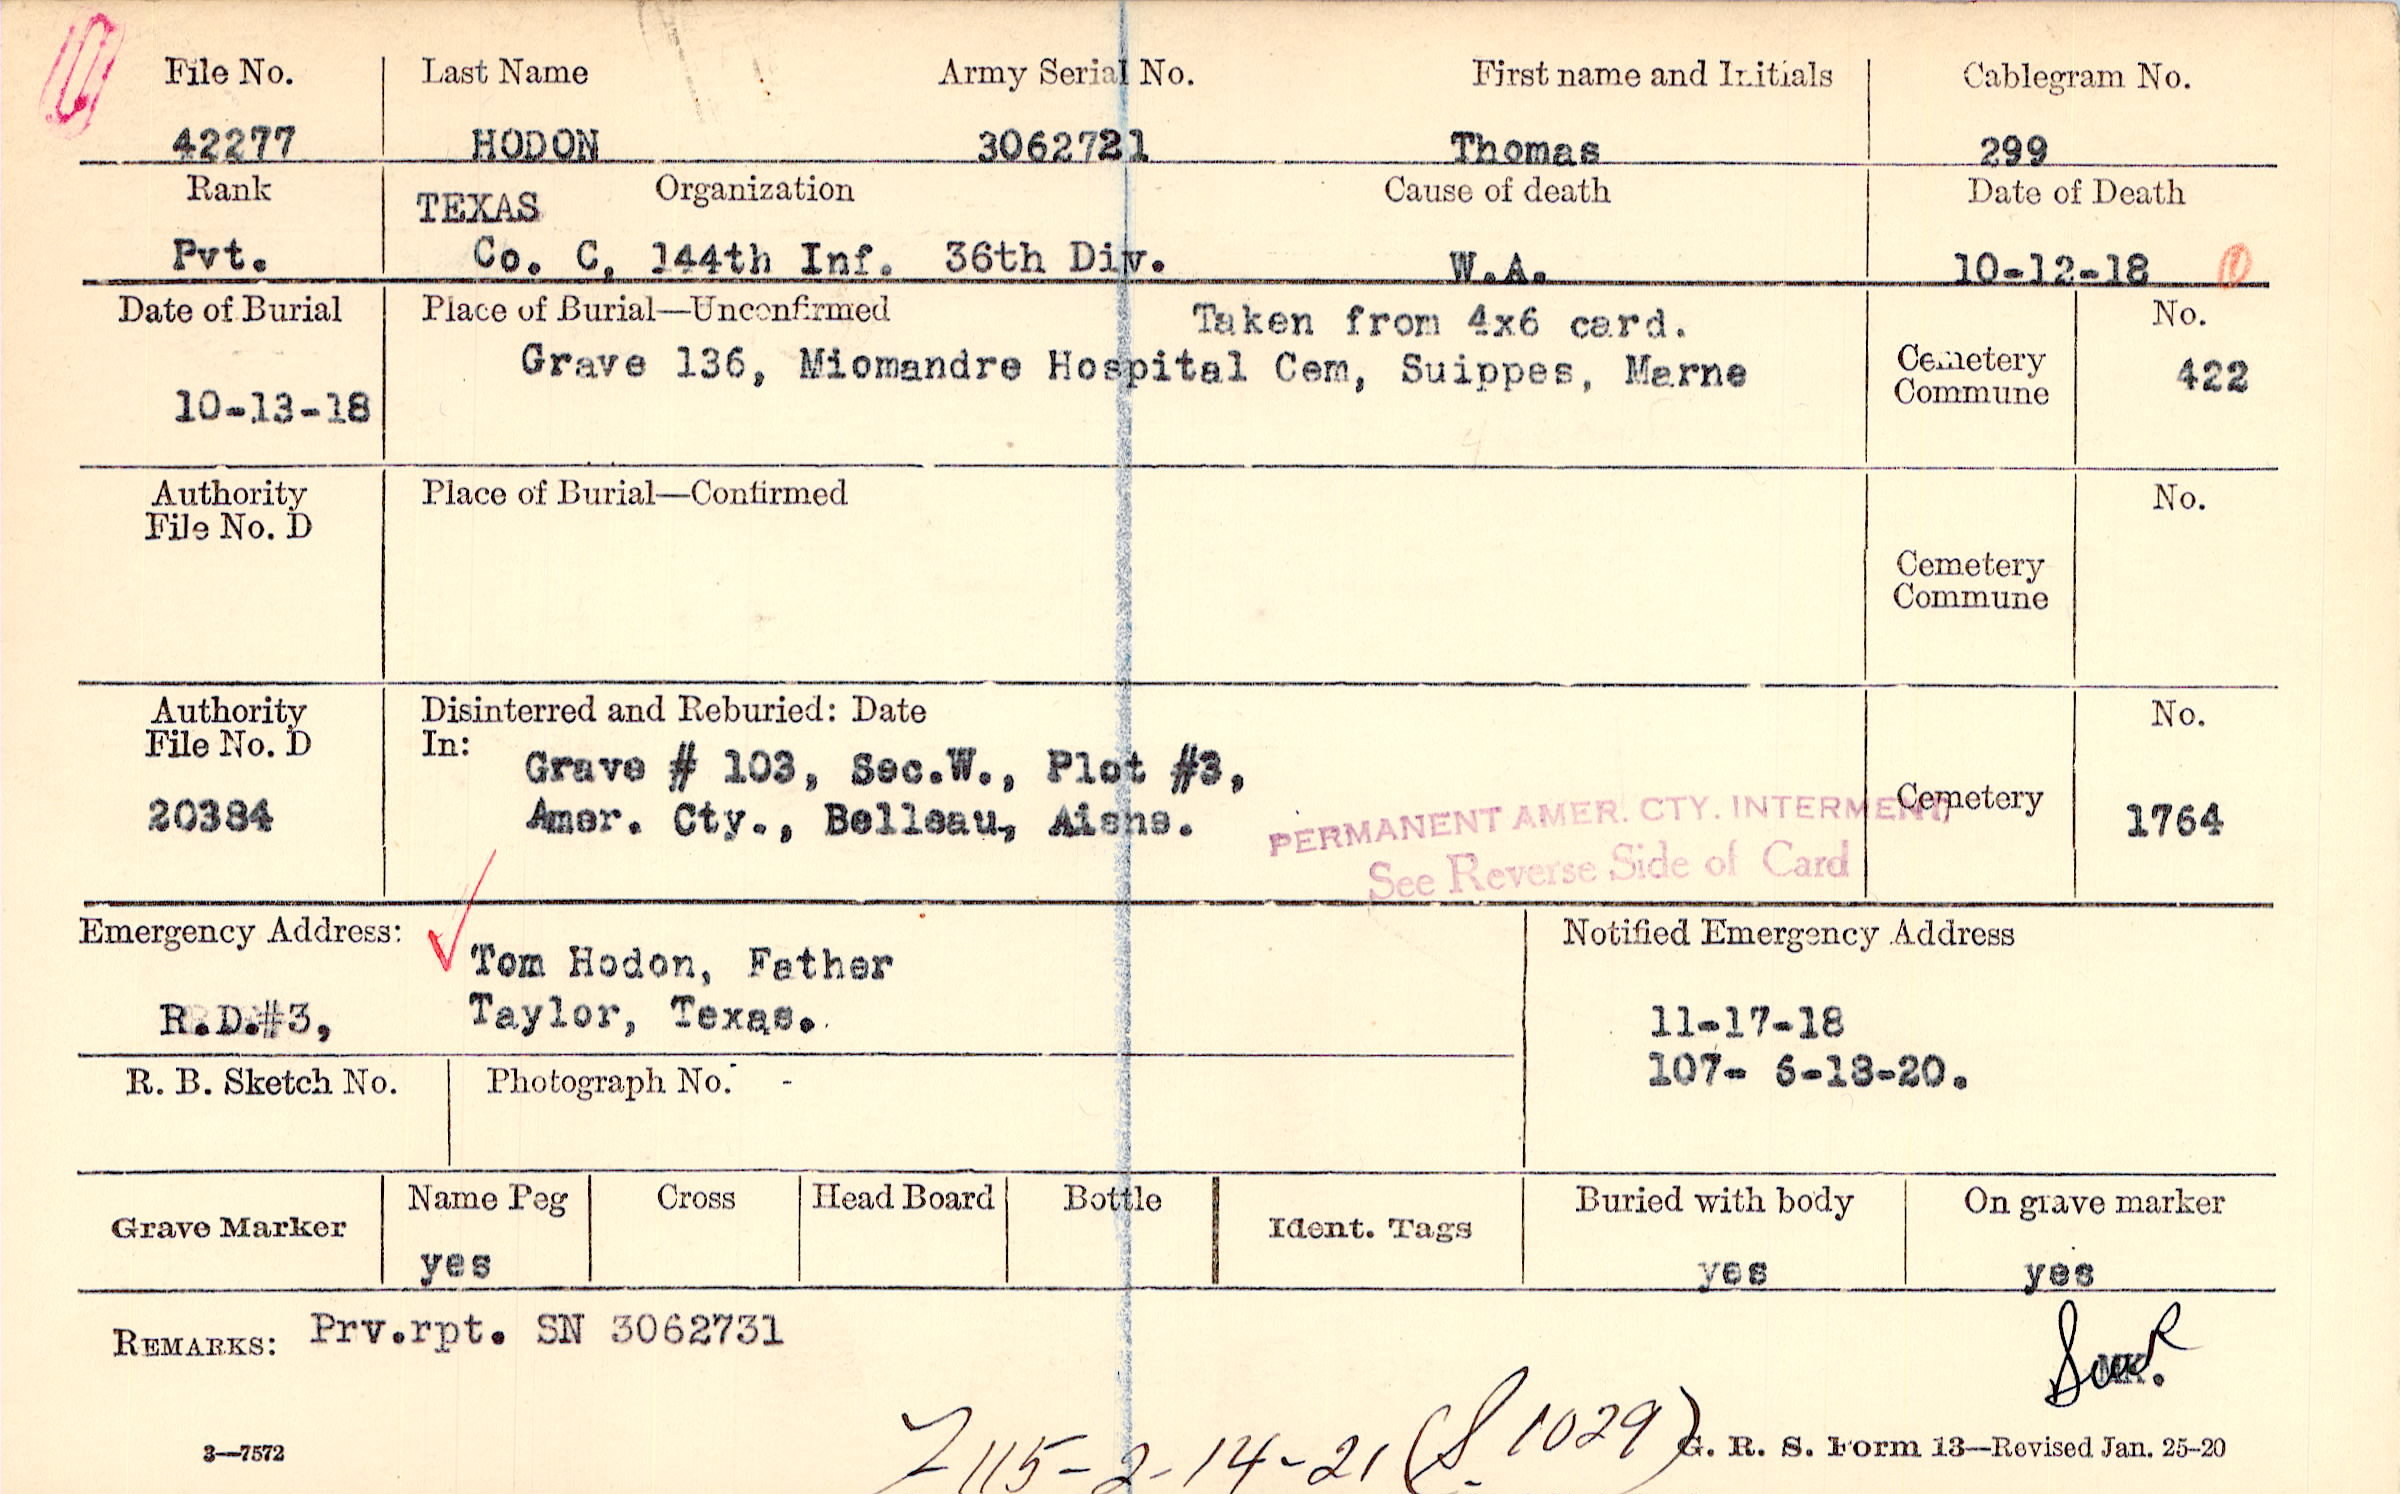 File No. Last Name Army Serial No. First name and Initials Cablegram No.
42277 HODON 3062721 Thomas 299
Rank TEXAS Organization Cause of death Date of Death
Pvt. Co. C, 144th Inf. 36th Div. W.A. 10-12-18
Date of Burial Place of Burial—Unconfirmed Taken from 4x6 card. No.
Grave 136, Miomandre Hospital Cem, Suippes, Marne Cemetery Commune 422
10-13-18
Authority File No. D Place of Burial—Confirmed No.
Cemetery
Commune
Authority Disinterred and Reburied: Date No.
File No. D In: Grave # 103, Sec.W., Plot #3,
20384 Amer. Cty., Belleau, Aisne. Cemetery 1764
PERMANENT AMER. CTY. INTERMENT
See Reverse Side of Card
Emergency Address: Tom Hodon, Father Notified Emergency Address
R.D.#3, Taylor, Texas. 11-17-18
107- 6-18-20.
R. B. Sketch No. Photograph No. -
Grave Marker Name Peg Cross Head Board Bottle Ident. Tags Buried with body On grave marker
yes yes yes
REMARKS: Prv.rpt. SN 3062731
MK.
Z115-2-14-21 (S. 1029)
3—7572 G. R. S. Form 13—Revised Jan. 25-20